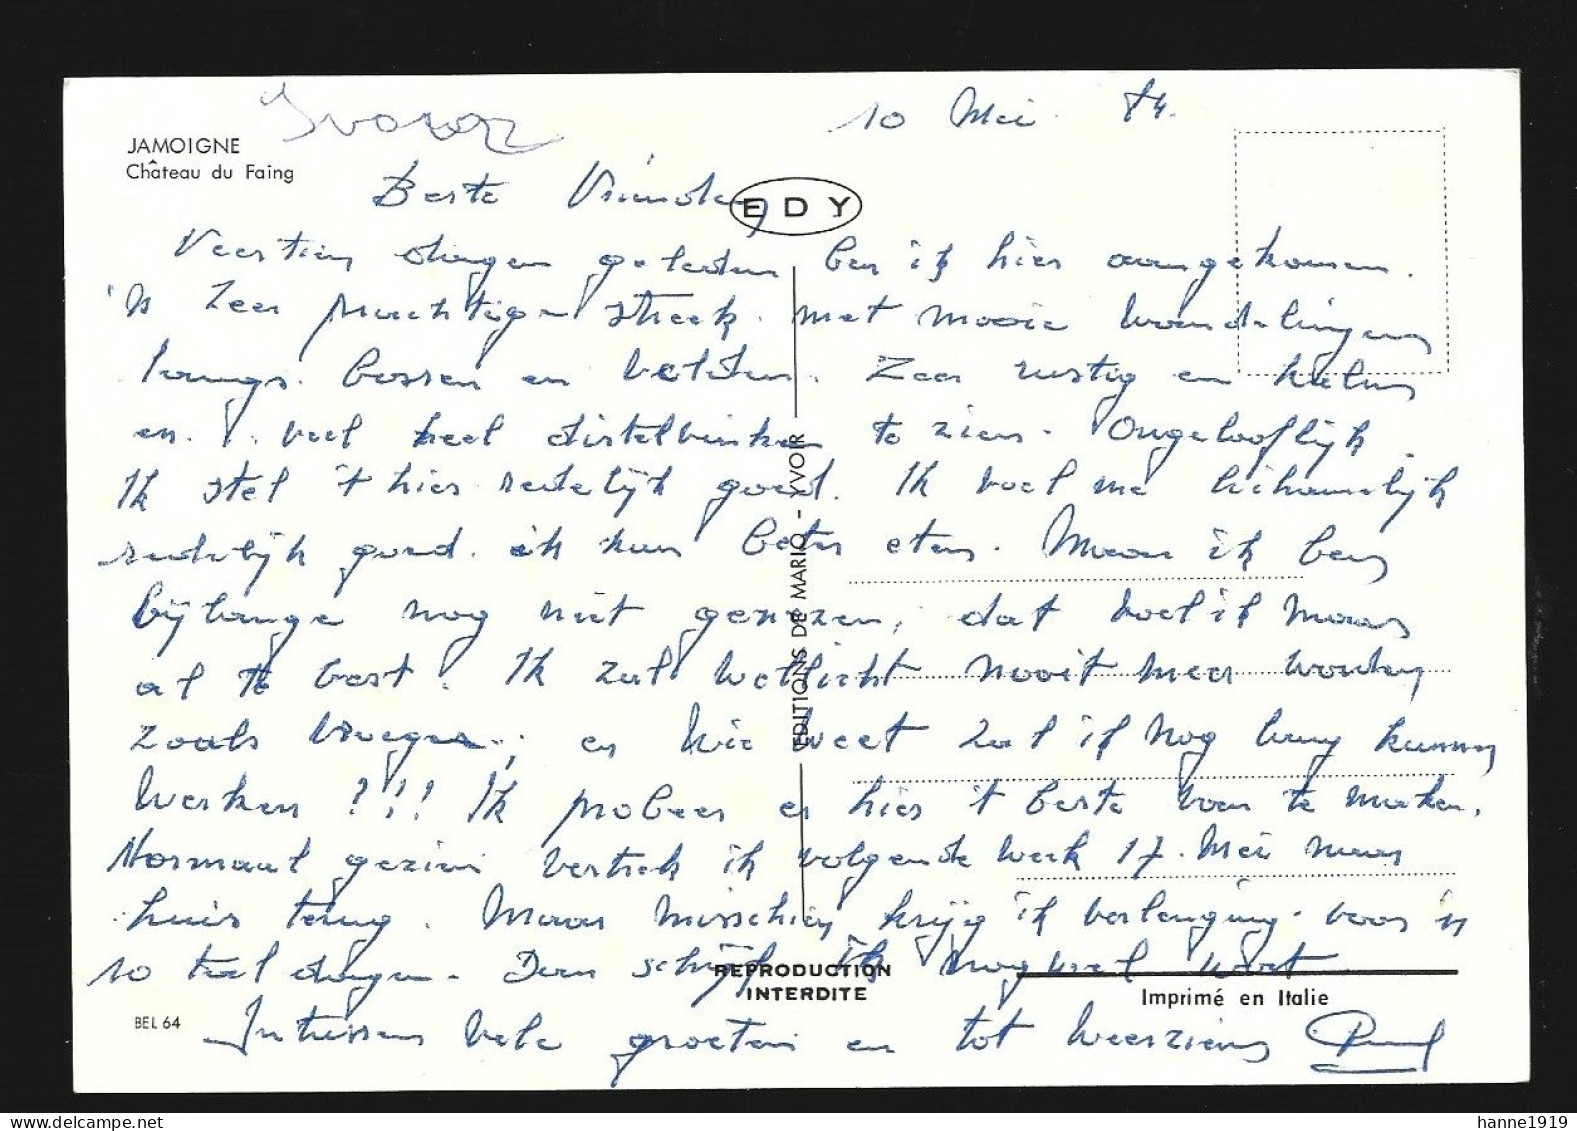 10 Mei 84.
JAMOIGNE
Château du Faing
Beste Vrienden
EDY
Veertien dagen geleden ben ik hier aangekomen.
'n zeer prachtige streek. met mooie wandelingen
langs bossen en velden. Zeer rustig en
en veel heel distelvinken te zien. Ongelooflijk.
Ik stel 't hier redelijk goed. Ik voel me lichamelijk
redelijk goed. ik kan beter eten. Maar ik ben
bijlange nog niet genezen, dat voel ik maar
al te best. Ik zal wellicht nooit meer worden
zoals vroeger; en wie weet zal ik nog lang kunnen
werken ?!!! Ik probeer er hier 't beste van te maken.
Normaal gezien vertrek ik volgende week 17. Mei naar
huis terug. Maar misschien krijg ik verlenging voor 'n
10 tal dagen. Dan schrijf ik nog wel
Intussen vele groeten en tot weerziens Paul
EDITIONS DE MARIO - YVOIR
REPRODUCTION
INTERDITE
Imprimé en Italie
BEL 64
www.delcampe.net
hanne1919